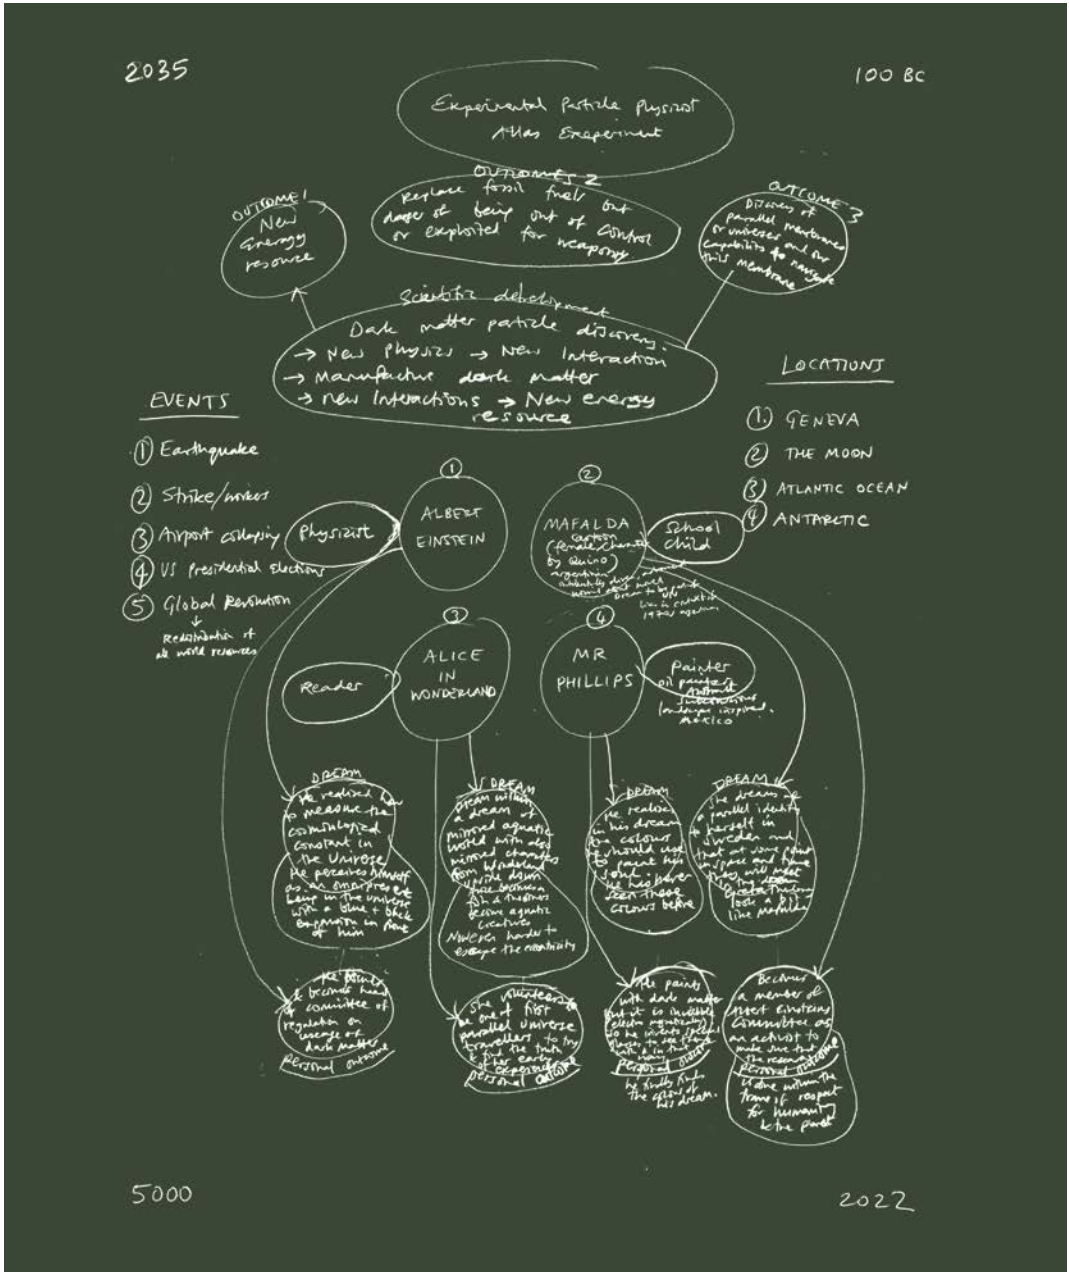 2035
100 BC
Experimental Particle Physizist
Atlas Exeperiment
OUTCOMES 2
Replace fossil fuels but
danger of being out of control
or exploited for weaponry.
OUTCOME 1
New
Energy
resource
OUTCOME 3
Discovery of
parallel membranes
or universes and our
capability to navigate
this membrane
Scientific development
Dark matter particle discovery.
→ New Physics → New Interaction
→ Manufactive dark matter
→ new Interactions → New energy
resource
EVENTS
① Earthquake
② Strike/workers
③ Airport collapsing
④ US Presidential Elections
⑤ Global Revolution
↓
Redistribution of
all world resources
LOCATIONS
①. GENEVA
② THE MOON
③ ATLANTIC OCEAN
④ ANTARCTIC
①
ALBERT
EINSTEIN
Physizist
②
MAFALDA
cartoon
(female character
by Quino)
argentinian
School
child
③
ALICE
IN
WONDERLAND
Reader
④
MR
PHILLIPS
Painter
oil painter
landscape inspired.
Mexico
DREAM
He realized how
to measure the
cosmological
constant in
the Universe
He perceives himself
as an omnipresent
being in the universe
with a blue + black
expansion in front
of him
DREAM
Dream within
a dream of
mirrored aquatic
world with also
mirrored characters
from Wonderland
upside down
become aquatic
creatures
However harder to
escape the eccentricity
DREAM
He realizes
in his dream
the colours
he should use
to paint his
soul.
He has never
seen these
colours before
DREAM
She dreams of
a parallel identity
to herself in
Sweden and
that at some point
in space and time
they will meet
look a bit
like Mafalda
He
becomes head
of committee of
regulation on
usage of
dark matter
personal outcome
She volunteers to
be one of first
parallel universe
travellers to try
& find the truth
of her early
experience
personal outcome
He paints
with dark matter
but it is invisible
so he invents special
glasses to see
personal outcome
he finally finds
the colour of
his dream.
Becomes
a member of
committee as
an activist to
make sure that
the research
personal outcome
is done within the
frame of respect
for humanity
& the planet
5000
2022